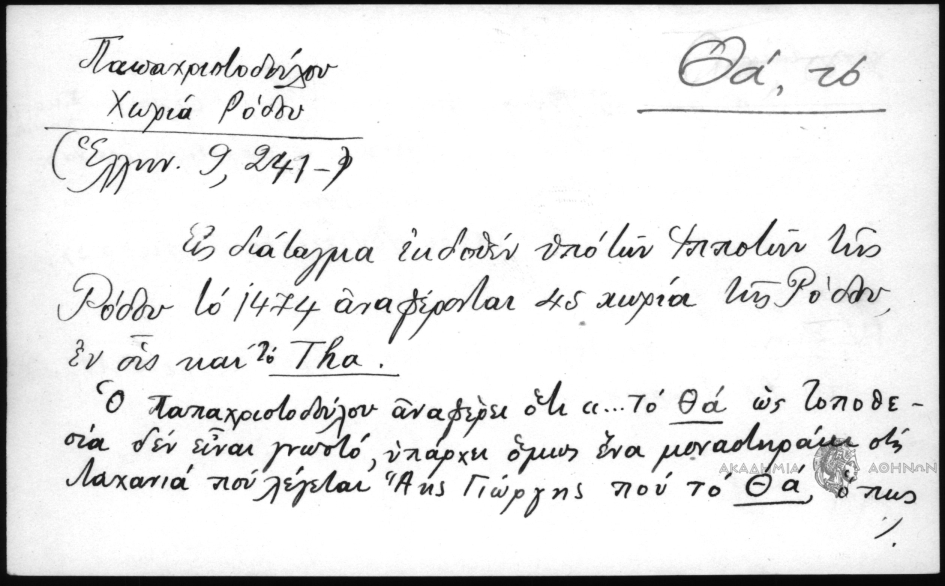 Παπαχριστοδούλου
Χωριά Ρόδου
(Ἑλλην. 9, 241-)
Θά, τό
Εἰς διάταγμα ἐκδοθέν ὑπό τῶν Ἱπποτῶν τῆς
Ρόδου τό 1474 ἀναφέρονται 45 χωριά τῆς Ρόδου,
ἐν οἷς καί τό Tha.
Ὁ Παπαχριστοδούλου ἀναφέρει ὅτι «...τό Θά ὡς τοποθε-
σία δέν εἶναι γνωστό, ὑπάρχει ὅμως ἕνα μοναστηράκι στή
Λαχανιά πού λέγεται Ἅης Γιώργης πού τό Θά, ὅπως
./.
ΑΚΑΔΗΜΙΑ ΑΘΗΝΩΝ